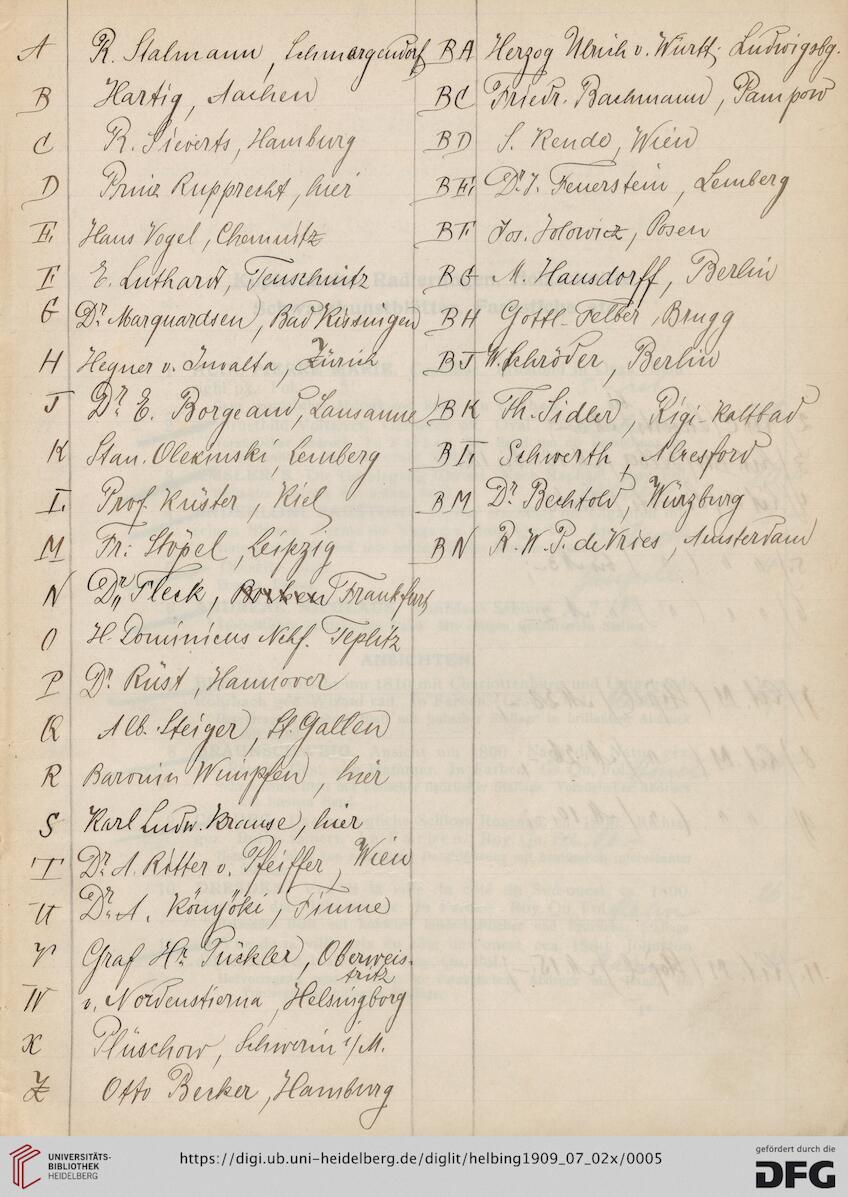 A R. Stalmann, Schmargendorf
B Hartig, Aachen
C R. Sieverts, Hamburg
D Prinz Rupprecht, hier
E. Hans Vogel, Chemnitz
F E. Luthardt, Teuschnitz
G Dr. Marquardsen, Bad Kissingen
H Hegner v. Juvalta, Zürich
J Dr. E. Borgeaud, Lausanne
K Stan. Olexinski, Lemberg
L. Prof. Küster, Kiel
M Fr: Stöpel, Leipzig
N Dr. Fleck, Frankfurt
O H. Dominicus Nchf. Teplitz
P Dr. Rüst, Hannover
Q Alb. Steiger, St. Gallen
R Baronin Wimpfen, hier
S Karl Ludw. Krause, hier
T Dr. A. Ritter v. Pfeiffer, Wien
U Dr. A. Könyöki, Fiume
V Graf Hr. Pückler, Oberweis-
tritz
W v. Nordenstierna, Helsingborg
X Plüschow, Schwerin i/M.
Z Otto Becker, Hamburg
BA Herzog Ulrich v. Württ. Ludwigsbg.
BC Friedr. Bachmann, Pampow
BD S. Kende, Wien
BE. Dr. J. Feuerstein, Lemberg
BF Jos. Jolowicz, Posen
BG M. Hausdorff, Berlin
BH Gottl. Felber, Brugg
BJ W. Schröder, Berlin
BK Th. Sidler, Rigi-Kaltbad
BL. Schwerth, Alresford
BM Dr. Bechtold, Würzburg
BN R. W. P. de Vries, Amsterdam
UNIVERSITÄTS-
BIBLIOTHEK
HEIDELBERG
https://digi.ub.uni-heidelberg.de/diglit/helbing1909_07_02x/0005
gefördert durch die
DFG